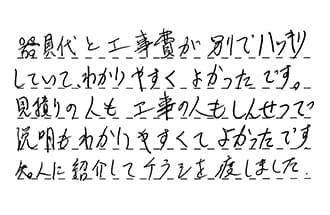 器具代と工事費が別でハッキリ
していて、わかりやすく よかったです。
見積りの人も 工事の人もしんせつで
説明もわかりやすくてよかったです
知人に紹介してチラシを渡しました.